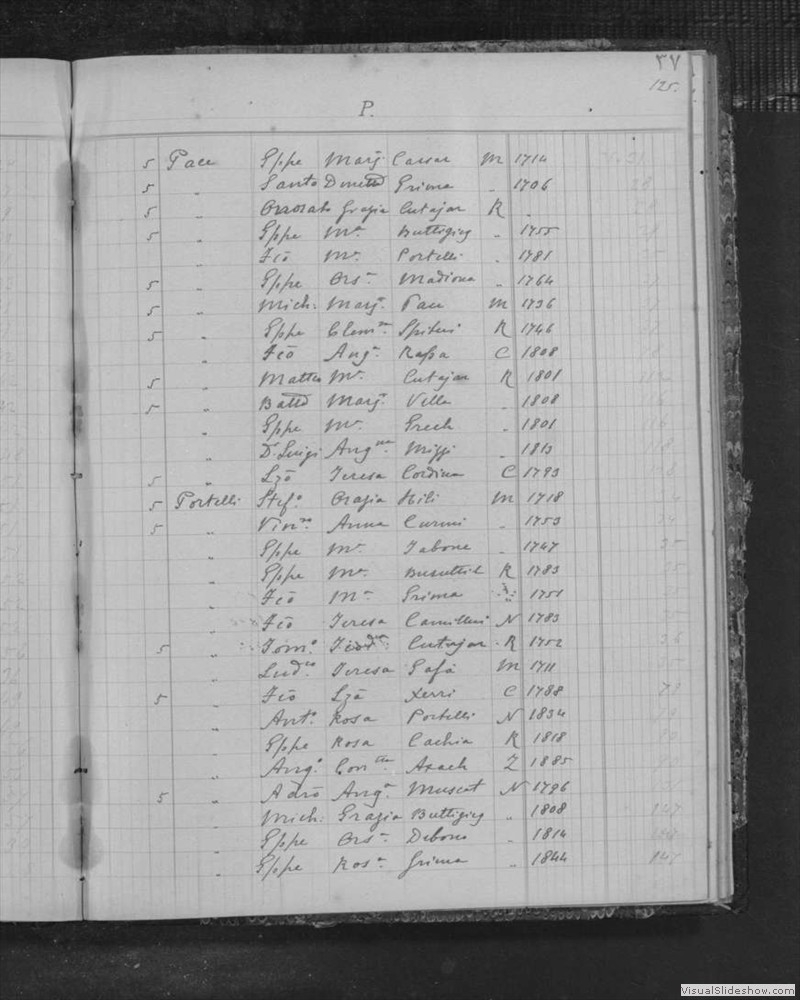 ٣٧
125.
P.
5 Pace Gppe Marg. Caruar M 1714
5 " Santo Dometta Grima " 1706
5 " Onorato Grazia Cutajar R "
5 " Gppe Ma. Buttigieg " 1755
" Fcō Ma. Portelli " 1781
5 " Gppe Ors.a Madiona " 1764
5 " Mich: Marg.a Pace M 1736
5 " Gppe Clem.za Spiteri R 1746
" Fcō Ang.a Rassa C 1808
5 " Matteo Ma. Cutajar R 1801
5 " Batta Marg.a Vella " 1808
" Gppe Ma. Grech " 1801
" Dr. Luigi Ang.ca Mizzi " 1813
5 " Lzō Teresa Cordina C 1793
5 Portelli Stef.o Grazia Hili M 1718
5 " Vin.zo Anna Curmi " 1753
" Gppe Ma. Tabone " 1747
" Gppe Ma. Busuttil R 1783
" Fcō Ma. Grima " 1751
" Fcō Teresa Camilleri N 1783
5 " Tom.o Cutajar R 1752
" Lud.co Teresa Gafà M 1711
5 " Fcō Lzā Xerri C 1788
" Ant.o Rosa Portelli N 1834
" Gppe Rosa Cachia R 1818
" Ang.o Con.tta Axach Z 1885
5 " Adrō Ang.a Muscat N 1796
" Mich: Grazia Buttigieg " 1808
" Gppe Ors.a Debono " 1814
" Gppe Ros.a Grima " 1844
VisualSlideshow.com